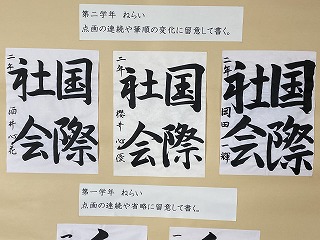 第二学年 ねらい
点画の連続や筆順の変化に留意して書く。
国際
社会
二年 岡田一輝
国際
社会
二年 櫻井心優
国際
社会
二年 酒井心花
第一学年 ねらい
点画の連続や省略に留意して書く。